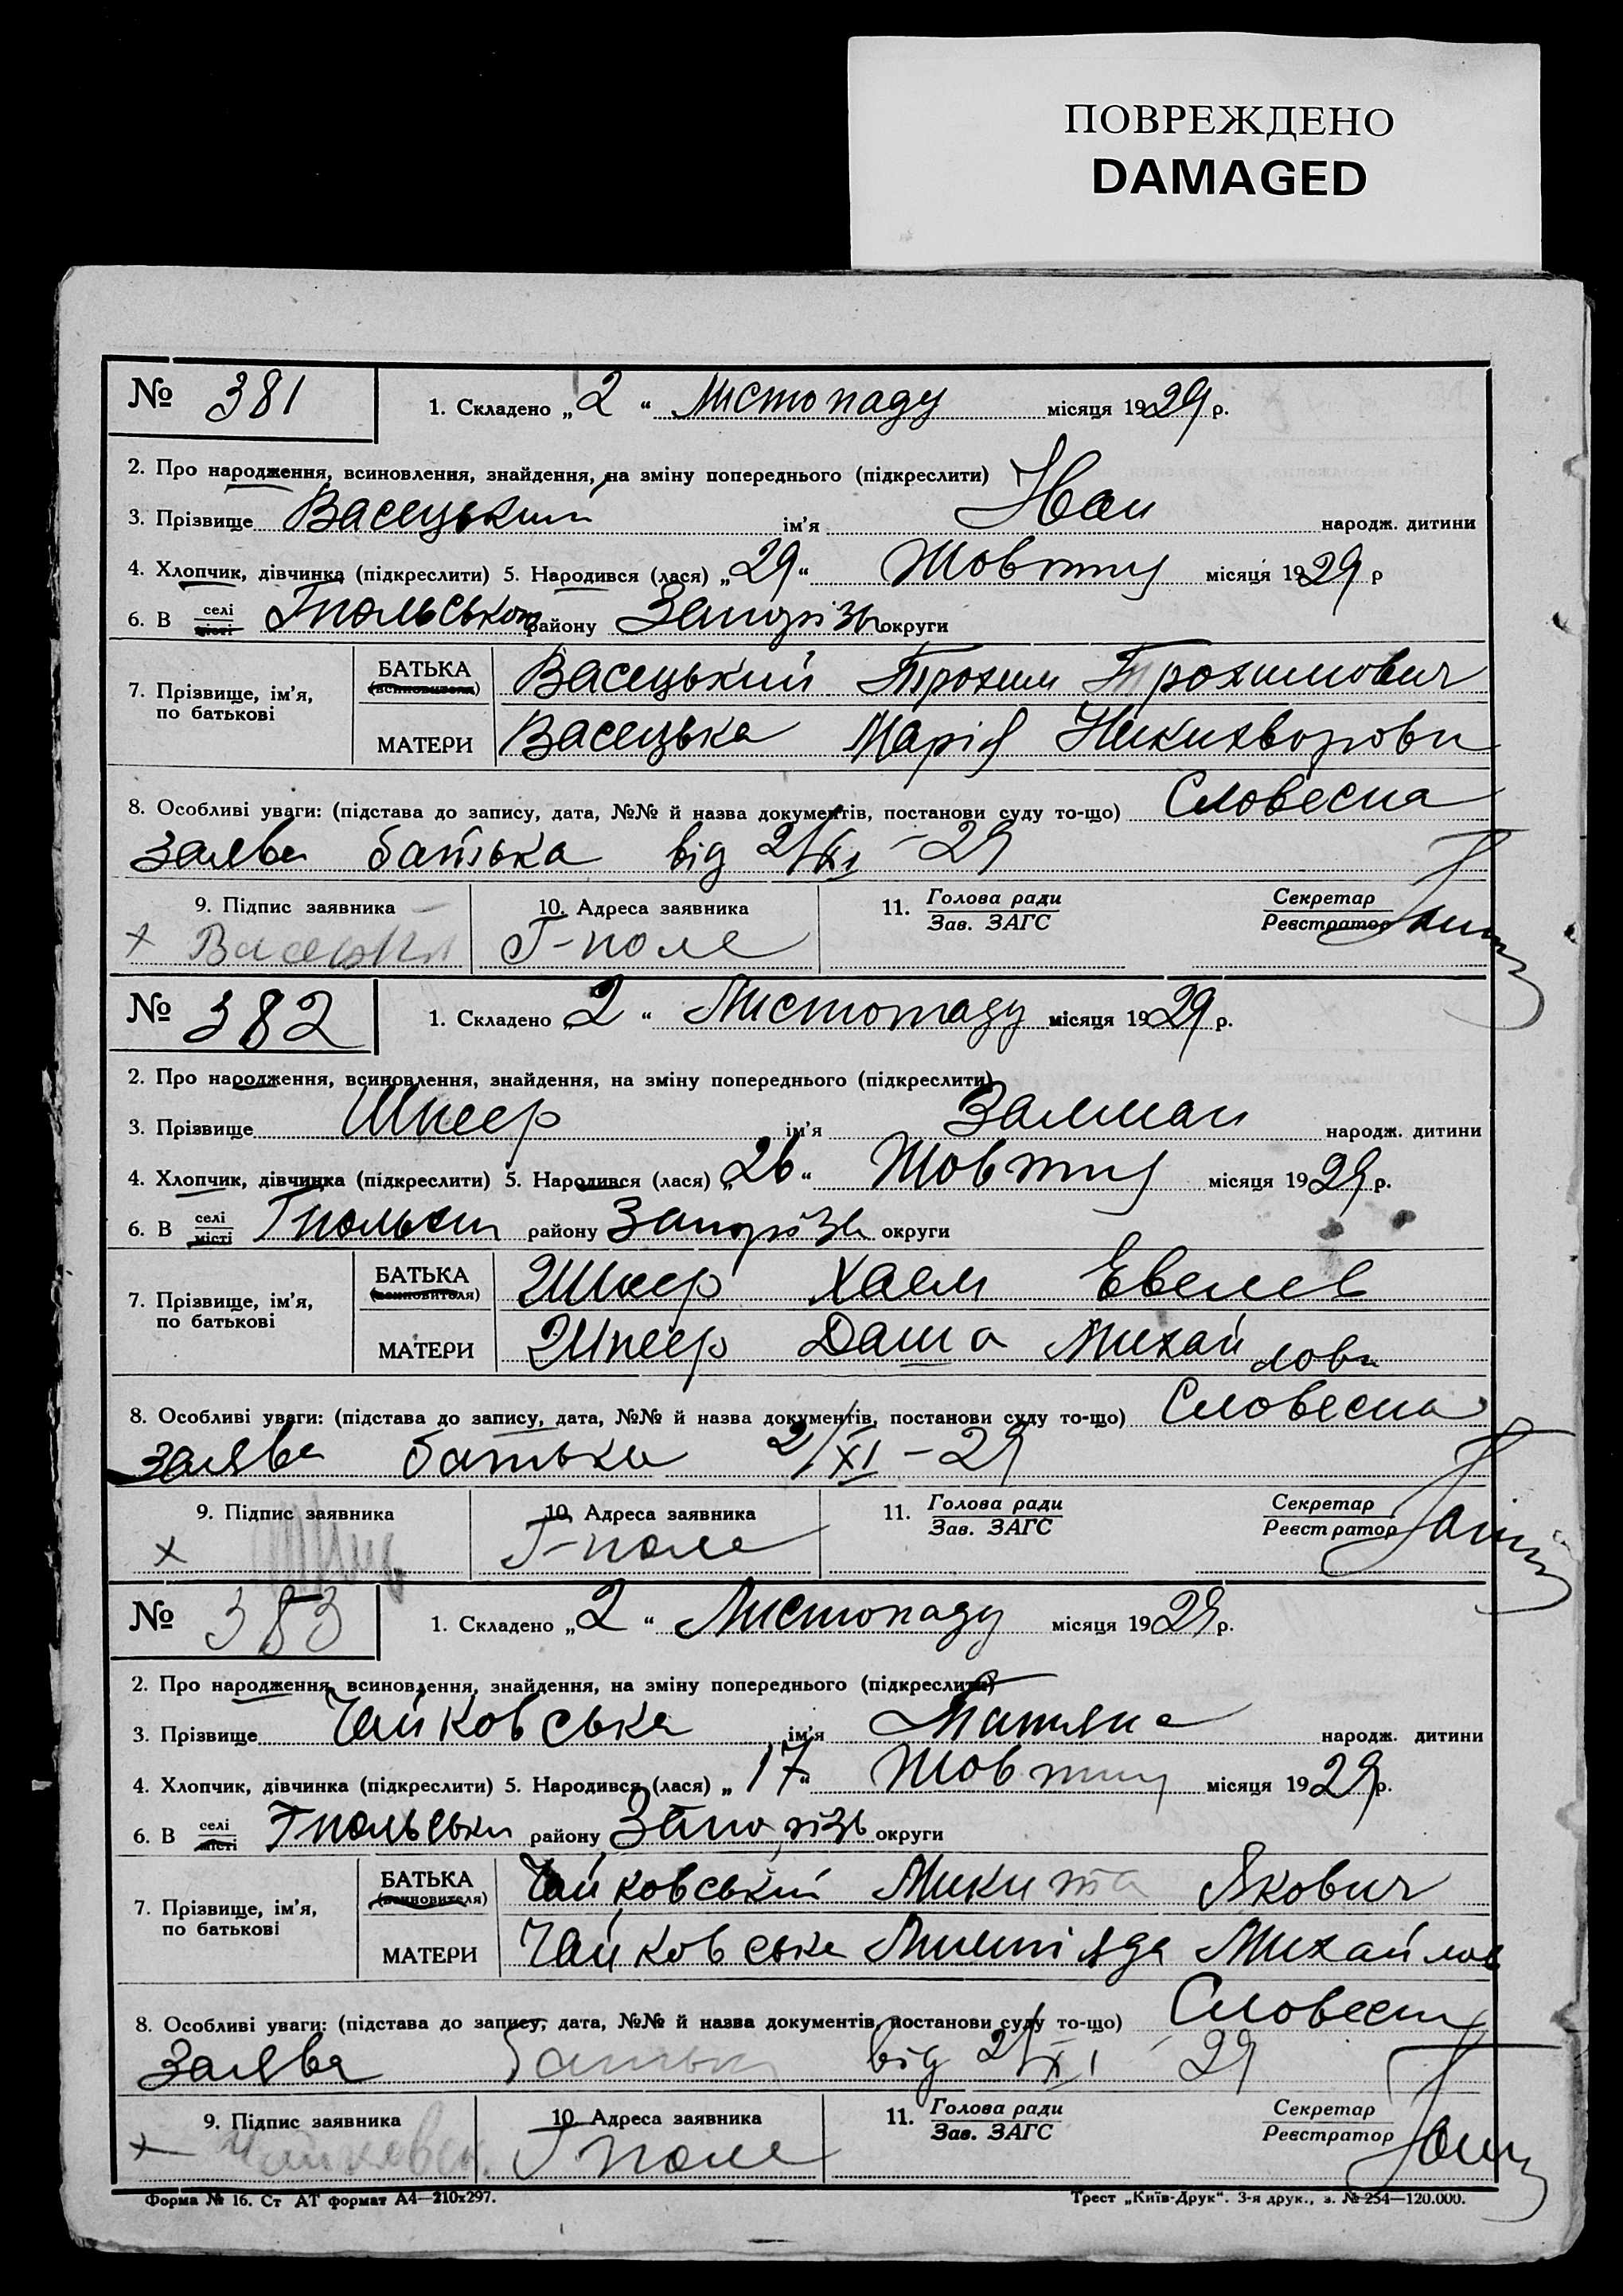 ПОВРЕЖДЕНО
DAMAGED
№ 381 1. Складено „2“ Листопаду місяця 1929 р.
2. Про народження, всиновлення, знайдення, на зміну попереднього (підкреслити)
3. Прізвище Васецький ім’я Иван народж. дитини
4. Хлопчик, дівчинка (підкреслити) 5. Народився (лася) „29“ Жовтня місяця 1929 р
6. В селі місті Гпольськом району Запорізь округи
7. Прізвище, ім’я, по батькові
БАТЬКА (всиновителя) Васецький Трохим Трохимович
МАТЕРИ Васецька Марія Никихворовн
8. Особливі уваги: (підстава до запису, дата, №№ й назва документів, постанови суду то-що) Словесна
заява батька від 2/XI – 29
9. Підпис заявника 10. Адреса заявника 11. Голова ради Зав. ЗАГС Секретар Реєстратор
+ Г-поле
№ 382 1. Складено „2“ Листопаду місяця 1929 р.
2. Про народження, всиновлення, знайдення, на зміну попереднього (підкреслити)
3. Прізвище Шнеер ім’я Залман народж. дитини
4. Хлопчик, дівчинка (підкреслити) 5. Народився (лася) „26“ Жовтня місяця 1929 р.
6. В селі місті району Запорізь округи
7. Прізвище, ім’я, по батькові
БАТЬКА (всиновителя) Шнеер Хаем Евелев
МАТЕРИ Шнеер Даша Михайловн
8. Особливі уваги: (підстава до запису, дата, №№ й назва документів, постанови суду то-що) Словесна
заява батька 2/XI – 29
9. Підпис заявника 10. Адреса заявника 11. Голова ради Зав. ЗАГС Секретар Реєстратор
+ Г-поле
№ 383 1. Складено „2“ Листопаду місяця 1929 р.
2. Про народження, всиновлення, знайдення, на зміну попереднього (підкреслити)
3. Прізвище Чайковська ім’я Татьяна народж. дитини
4. Хлопчик, дівчинка (підкреслити) 5. Народився (лася) „17“ Жовтня місяця 1929 р.
6. В селі місті Гпольськи району Запорізь округи
7. Прізвище, ім’я, по батькові
БАТЬКА (всиновителя) Чайковський Микита Якович
МАТЕРИ Чайковська Михайлов
8. Особливі уваги: (підстава до запису, дата, №№ й назва документів, постанови суду то-що) Словесн
Заява батька від 2/XI 29
9. Підпис заявника 10. Адреса заявника 11. Голова ради Зав. ЗАГС Секретар Реєстратор
+ Г поле
Форма № 16. Ст АТ формат А4—210х297. Трест „Київ-Друк“. 3-я друк., з. № 254—120.000.